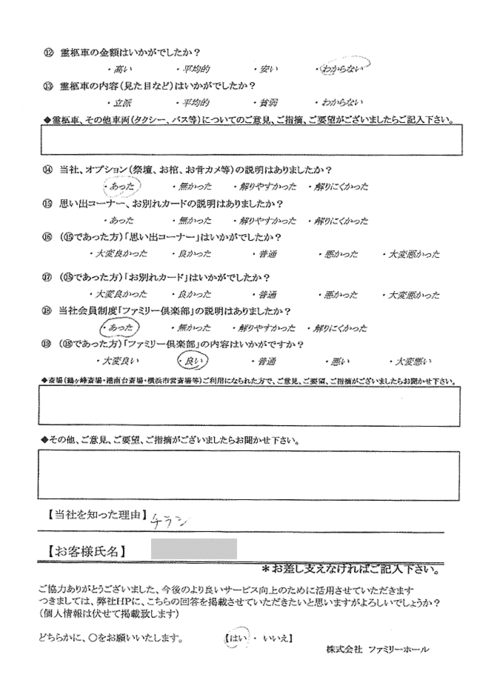 ⑫ 霊柩車の金額はいかがでしたか？
・高い ・平均的 ・安い ・わからない
⑬ 霊柩車の内容（見た目など）はいかがでしたか？
・立派 ・平均的 ・貧弱 ・わからない
◆霊柩車、その他車両（タクシー、バス等）についてのご意見、ご指摘、ご要望がございましたらご記入下さい。
⑭ 当社、オプション（祭壇、お棺、お骨カメ等）の説明はありましたか？
・あった ・無かった ・解りやすかった ・解りにくかった
⑮ 思い出コーナー、お別れカードの説明はありましたか？
・あった ・無かった ・解りやすかった ・解りにくかった
⑯ （⑮であった方）「思い出コーナー」はいかがでしたか？
・大変良かった ・良かった ・普通 ・悪かった ・大変悪かった
⑰ （⑮であった方）「お別れカード」はいかがでしたか？
・大変良かった ・良かった ・普通 ・悪かった ・大変悪かった
⑱ 当社会員制度「ファミリー倶楽部」の説明はありましたか？
・あった ・無かった ・解りやすかった ・解りにくかった
⑲ （⑱であった方）「ファミリー倶楽部」の内容はいかがですか？
・大変良い ・良い ・普通 ・悪い ・大変悪い
◆斎場（鶴ヶ峰斎場・港南台斎場・横浜市営斎場等）ご利用になられた方で、ご意見、ご要望、ご指摘がございましたらお聞かせ下さい。
◆その他、ご意見、ご要望、ご指摘がございましたらお聞かせ下さい。
【当社を知った理由】 チラシ
【お客様氏名】
＊お差し支えなければご記入下さい。
ご協力ありがとうございました、今後のより良いサービス向上のために活用させていただきます
つきましては、弊社HPに、こちらの回答を掲載させていただきたいと思いますがよろしいでしょうか？
（個人情報は伏せて掲載致します）
どちらかに、〇をお願いいたします。 【はい ・ いいえ】
株式会社 ファミリーホール